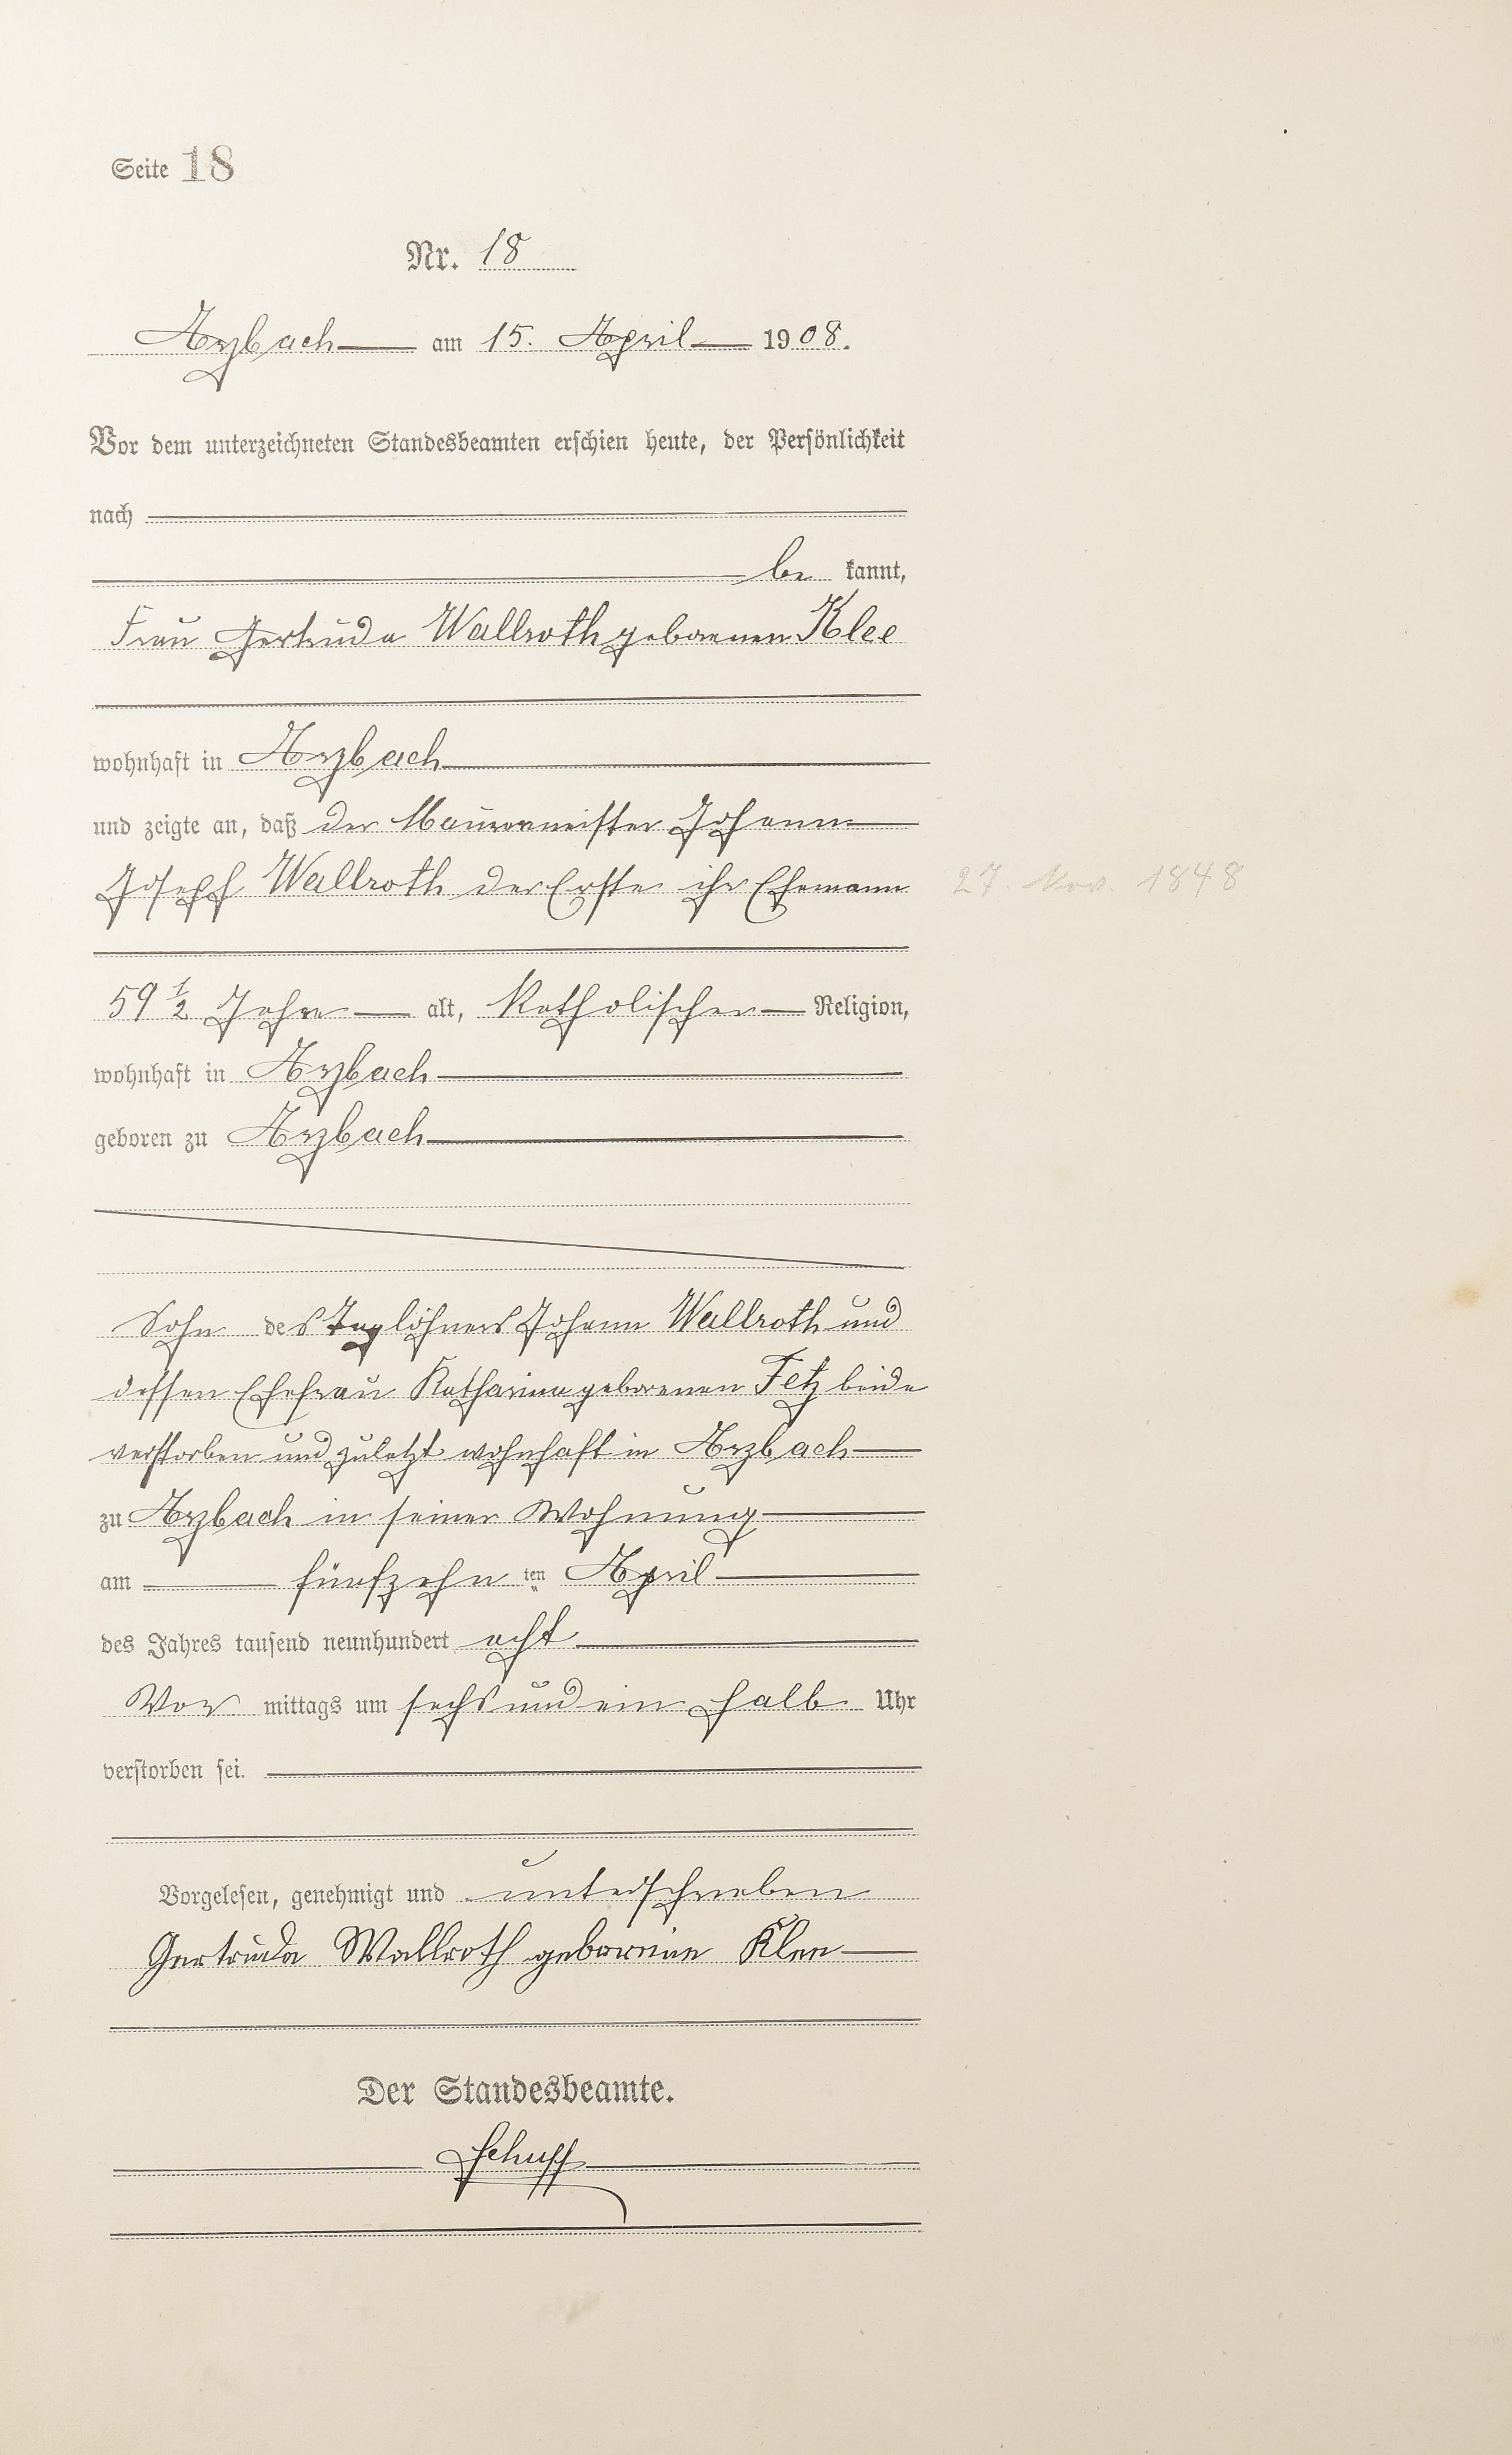 Seite 18
Nr. 18
Arzbach am 15. April 1908.
Vor dem unterzeichneten Standesbeamten erschien heute, der Persönlichkeit
nach
be kannt,
Frau Gertruda Wallroth geborenen Klee
wohnhaft in Arzbach
und zeigte an, daß der Maurermeister Johann
Joseph Wallroth der Erste ihr Ehemann
27. Nov. 1848
59 1/2 Jahre alt, Katholischer Religion,
wohnhaft in Arzbach
geboren zu Arzbach
Sohn des Taglöhners Johann Wallroth und
dessen Ehefrau Katharina geborenen Fetz beide
verstorben und zuletzt wohnhaft in Arzbach
zu Arzbach in seiner Wohnung
am fünfzehn ten April
des Jahres tausend neunhundert acht
Vor mittags um sechs und ein halb Uhr
verstorben sei.
Vorgelesen, genehmigt und unterschrieben
Gertruda Wallroth geborene Klee
Der Standesbeamte.
Schupp